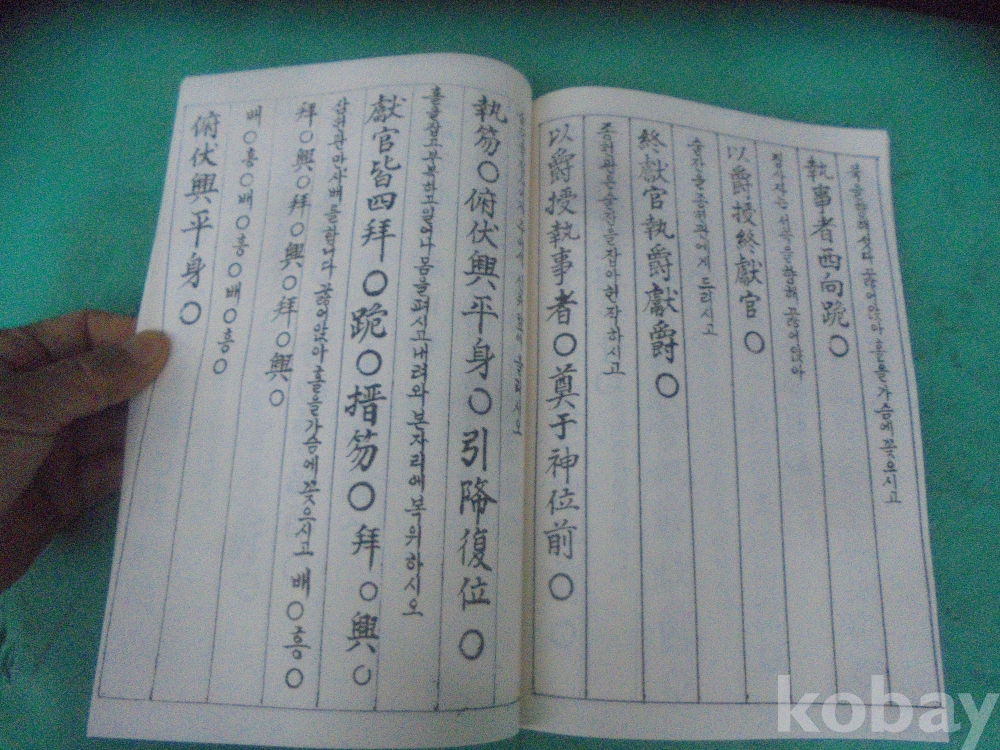 북을향해섯다 꿇어앉아 홀을가슴에 꽂으시고
執事者西向跪○
집사자는 서쪽을향해 꿇어앉아
以爵授終獻官○
술잔을 종헌관에게 드리시고
終獻官執爵獻爵○
종헌관은 술잔을 잡아 헌작하시고
以爵授執事者○奠于神位前○
執笏○俯伏興平身○引降復位○
홀을잡고 부복하고 일어나 몸을펴시고 내려와 본자리에 복위하시오
獻官皆四拜○跪○搢笏○拜○興○
삼헌관만 사배를합니다 꿇어앉아 홀을가슴에 꽂으시고 배○흥○
拜○興○拜○興○拜○興○
배○흥○배○흥○배○흥○
俯伏興平身○
kobay